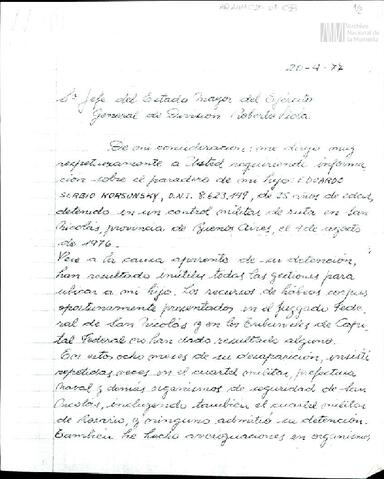 Archivo
Nacional de
la Memoria
20-4-77
Sr. Jefe del Estado Mayor del Ejército
General de Division Roberto Viola
De mi consideracion: me dirijo muy
respetuosamente a Usted requiriendo informa
cion sobre el paradero de mi hijo: EDUARDO
SERGIO KORSUNSKY, D.N.I. 8.623.449, de 25 años de edad,
detenido en un control militar de ruta en San
Nicolás, provincia de Buenos Aires, el 4 de agosto
de 1976.
Pese a la causa aparente de su detención,
han resultado inútiles todas las gestiones para
ubicar a mi hijo. Los recursos de hábeas corpus
oportunamente presentados en el Juzgado Fede
ral de San Nicolás y en los Tribunales de Capi
tal Federal no han dado resultado alguno.
En estos ocho meses de su desaparición, insistí
repetidas veces en el cuartel militar, prefectura
naval y demás organismos de seguridad de San
Nicolás, incluyendo tambien el cuartel militar
de Rosario, y ninguno admitió su detención.
Tambien he hecho averiguaciones en organismos